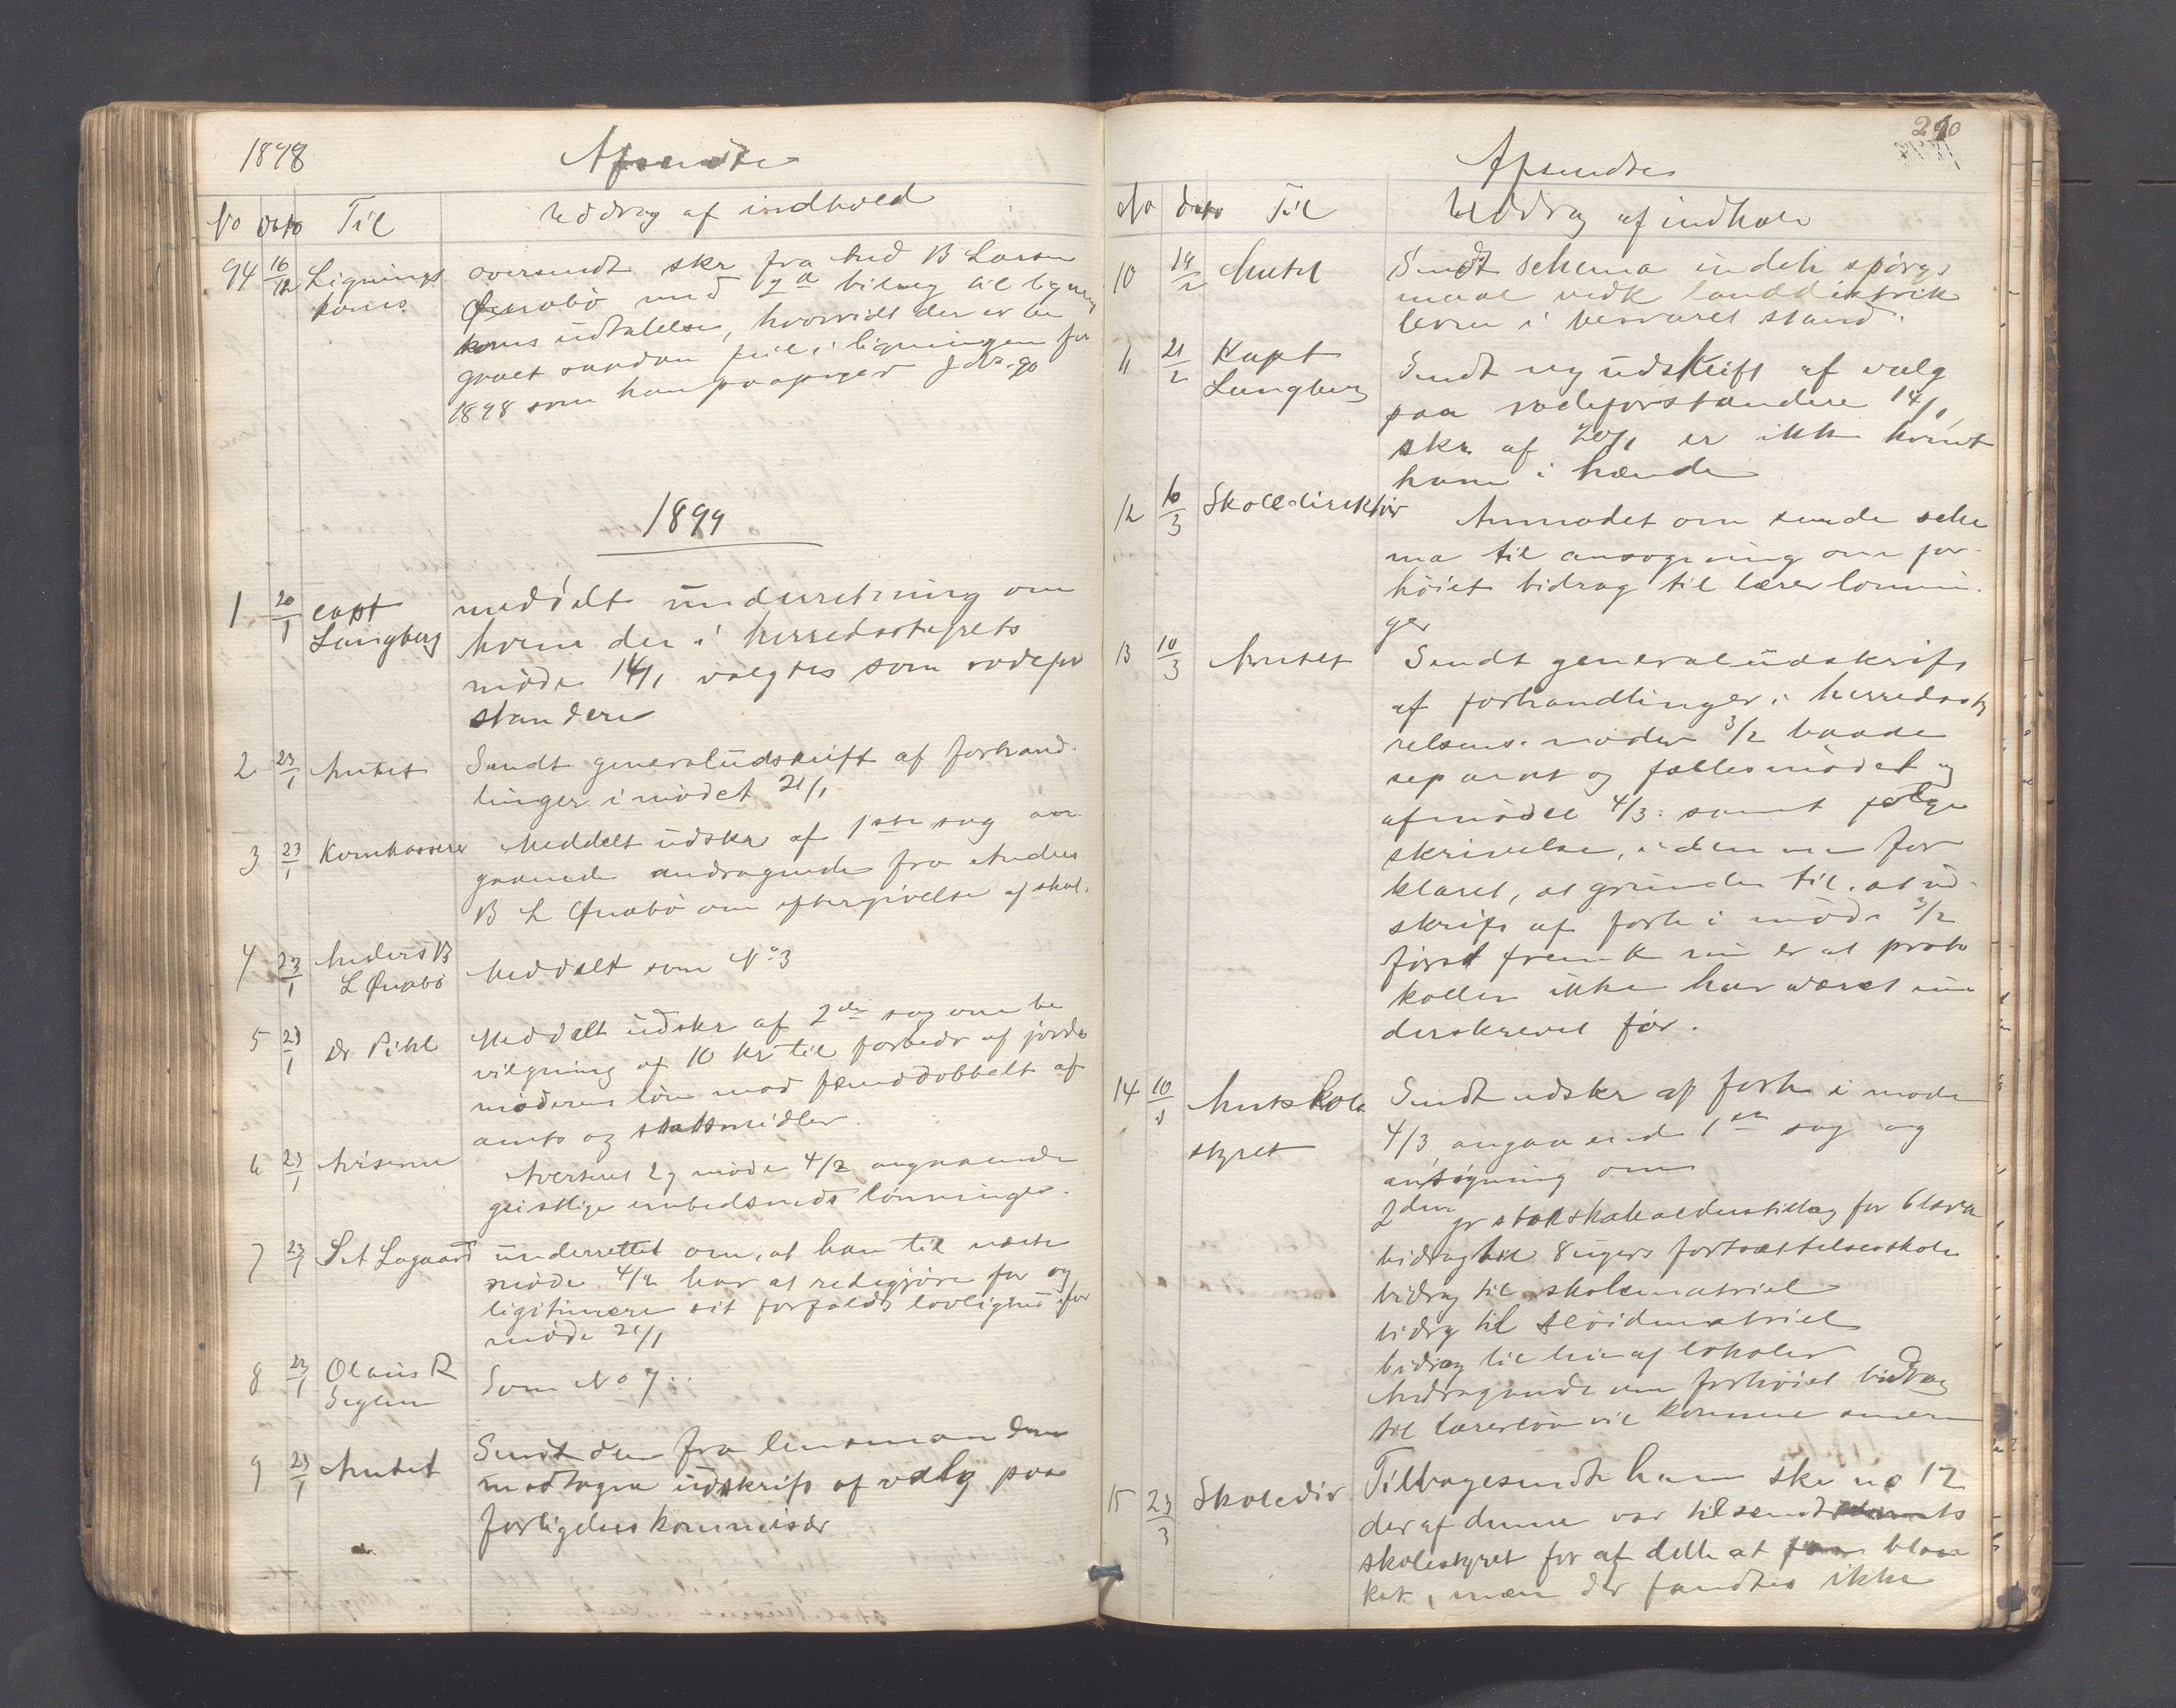 1898 Afsendte
No Dato Til Uddrag af indhold
94 16/12 Lignings oversendt skr fra And B Larsen
koms. Ønabö med 7 bilag til ligning
koms udtalelse, hvorvidt der er be
gaaet saadan feil i ligningen for
1898 som han paapeger
1899
1 20/1 capt meddelt underretning om
Langberg hvem der i herredsstyrets
møde 14/1 valgtes som rodefor
standere
2 23/1 Amtet Sendt generaludskrift af forhand
linger i mødet 21/1
3 23/1 Komkasserer Meddelt udskr af 1ste sag an
gaaende andragende fra Anders
B L Ønabö om eftergivelse af skat.
4 23/1 Anders B Meddelt som No 3
L Ønabö
5 23/1 Dr Pihl Meddelt udskr af 2den sag om be
vilgning af 10 kr til forbedr af jorde
möderens løn mod femdobbelt af
amts og statsmidler.
6 23/1 Aviserne Averteret møde 4/2 angaaende
geistlige embedsmds lønninger.
7 23/1 Set Lagaard underrettet om, at han til næste
møde 4/2 har at redegjøre for og
ligitimere sit forfalds lovlighed for
møde 21/1
8 23/1 Olaus R Som No 7.
Seglem
9 23/1 Amtet Sendt den fra lensmanden
modtagne udskrift af valg paa
forligelseskommisær
240
Afsendtes
No Dato Til Uddrag af indhold
10 14/2 Amtet Sendt schema indeh spörgs
maal vedk landdistrik
terne i besvaret stand.
11 21/2 Kapt Sendt ny udskrift af valg
Langberg paa rodeforstandere 14/1
skr af 20/1 er ikke komt
ham i hænde
12 6/3 Skoledirektör Anmodet om sende sche
ma til ansøgning om for-
höiet bidrag til lærerlönnin-
ger
13 10/3 Amtet Sendt generaludskrift
af forhandlinger i herredssty
relsens möder 3/2 baade
separat og fællesmödet og
af mödet 4/3 samt følge
skrivelse, i denne for
klaret, at grunden til at ud-
skrift af forh i möde 3/2
först fremk nu er at proto
kollen ikke har været un
derskrevet för.
14 10/3 Amtskole Sendt udskr af forh i mode
styret 4/3 angaaende 1ste sag og
ansögning om
2den gr statsskolealderstillæg for 6 lærere
bidrag til 8 ugers fortsættelsesskole
bidrag til skolematriel
bidrag til slöidmatriel
bidrag til leie af lokaler
Andragende om forhöiet bidrag
til lærerlön vil komme senere
15 23/3 Skoledir Tilbagesendt ham skr no 12
der af denne var tilsendt amts
skolestyret for af dette at faa blan
ket, men der fandtes ikke